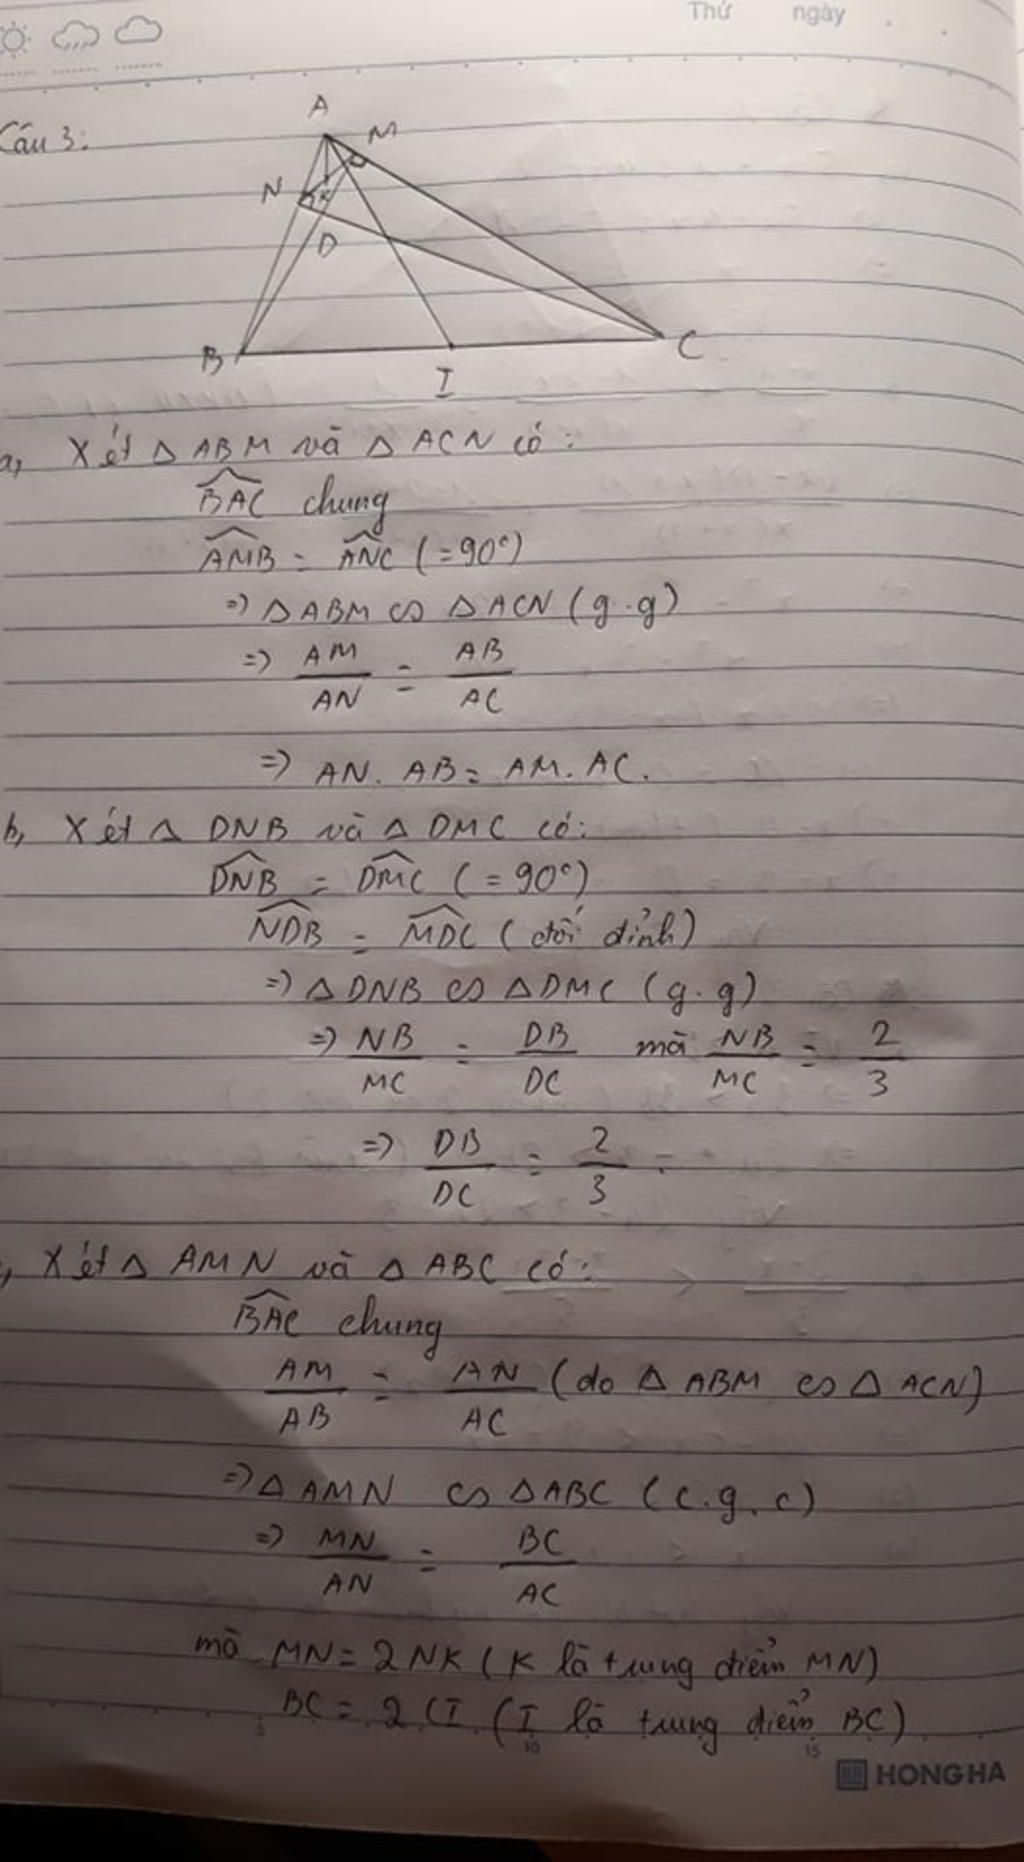 Thứ ngày
Câu 3:
A
M
N
K
D
B
I
C
a, Xét △ ABM và △ ACN có:
BAC chung
AMB = ANC (=90°)
=> △ ABM ∽ △ ACN (g.g)
=> AM/AN = AB/AC
=> AN. AB = AM. AC.
b, Xét △ DNB và △ DMC có:
DNB = DMC (=90°)
NDB = MDC (đối đỉnh)
=> △ DNB ∽ △ DMC (g.g)
=> NB/MC = DB/DC mà NB/MC = 2/3
=> DB/DC = 2/3.
, Xét △ AMN và △ ABC có:
BAC chung
AM/AB = AN/AC (do △ ABM ∽ △ ACN)
=> △ AMN ∽ △ ABC (c.g.c)
=> MN/AN = BC/AC
mà MN = 2NK (K là trung điểm MN)
BC = 2CI (I là trung điểm BC)
10 15
HONG HA